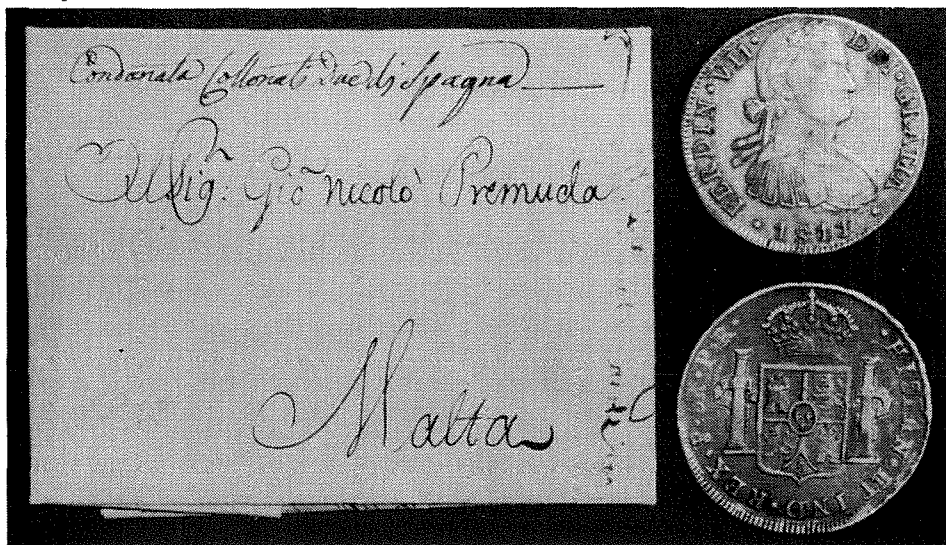 Condanata Collonati due di Spagna
All Sig.r Gio Nicolò Premuda
Malta
FERDIN · VII
DEI · GRATIA
· 1811 ·
· HISPAN · ET IND · REX ·
8R